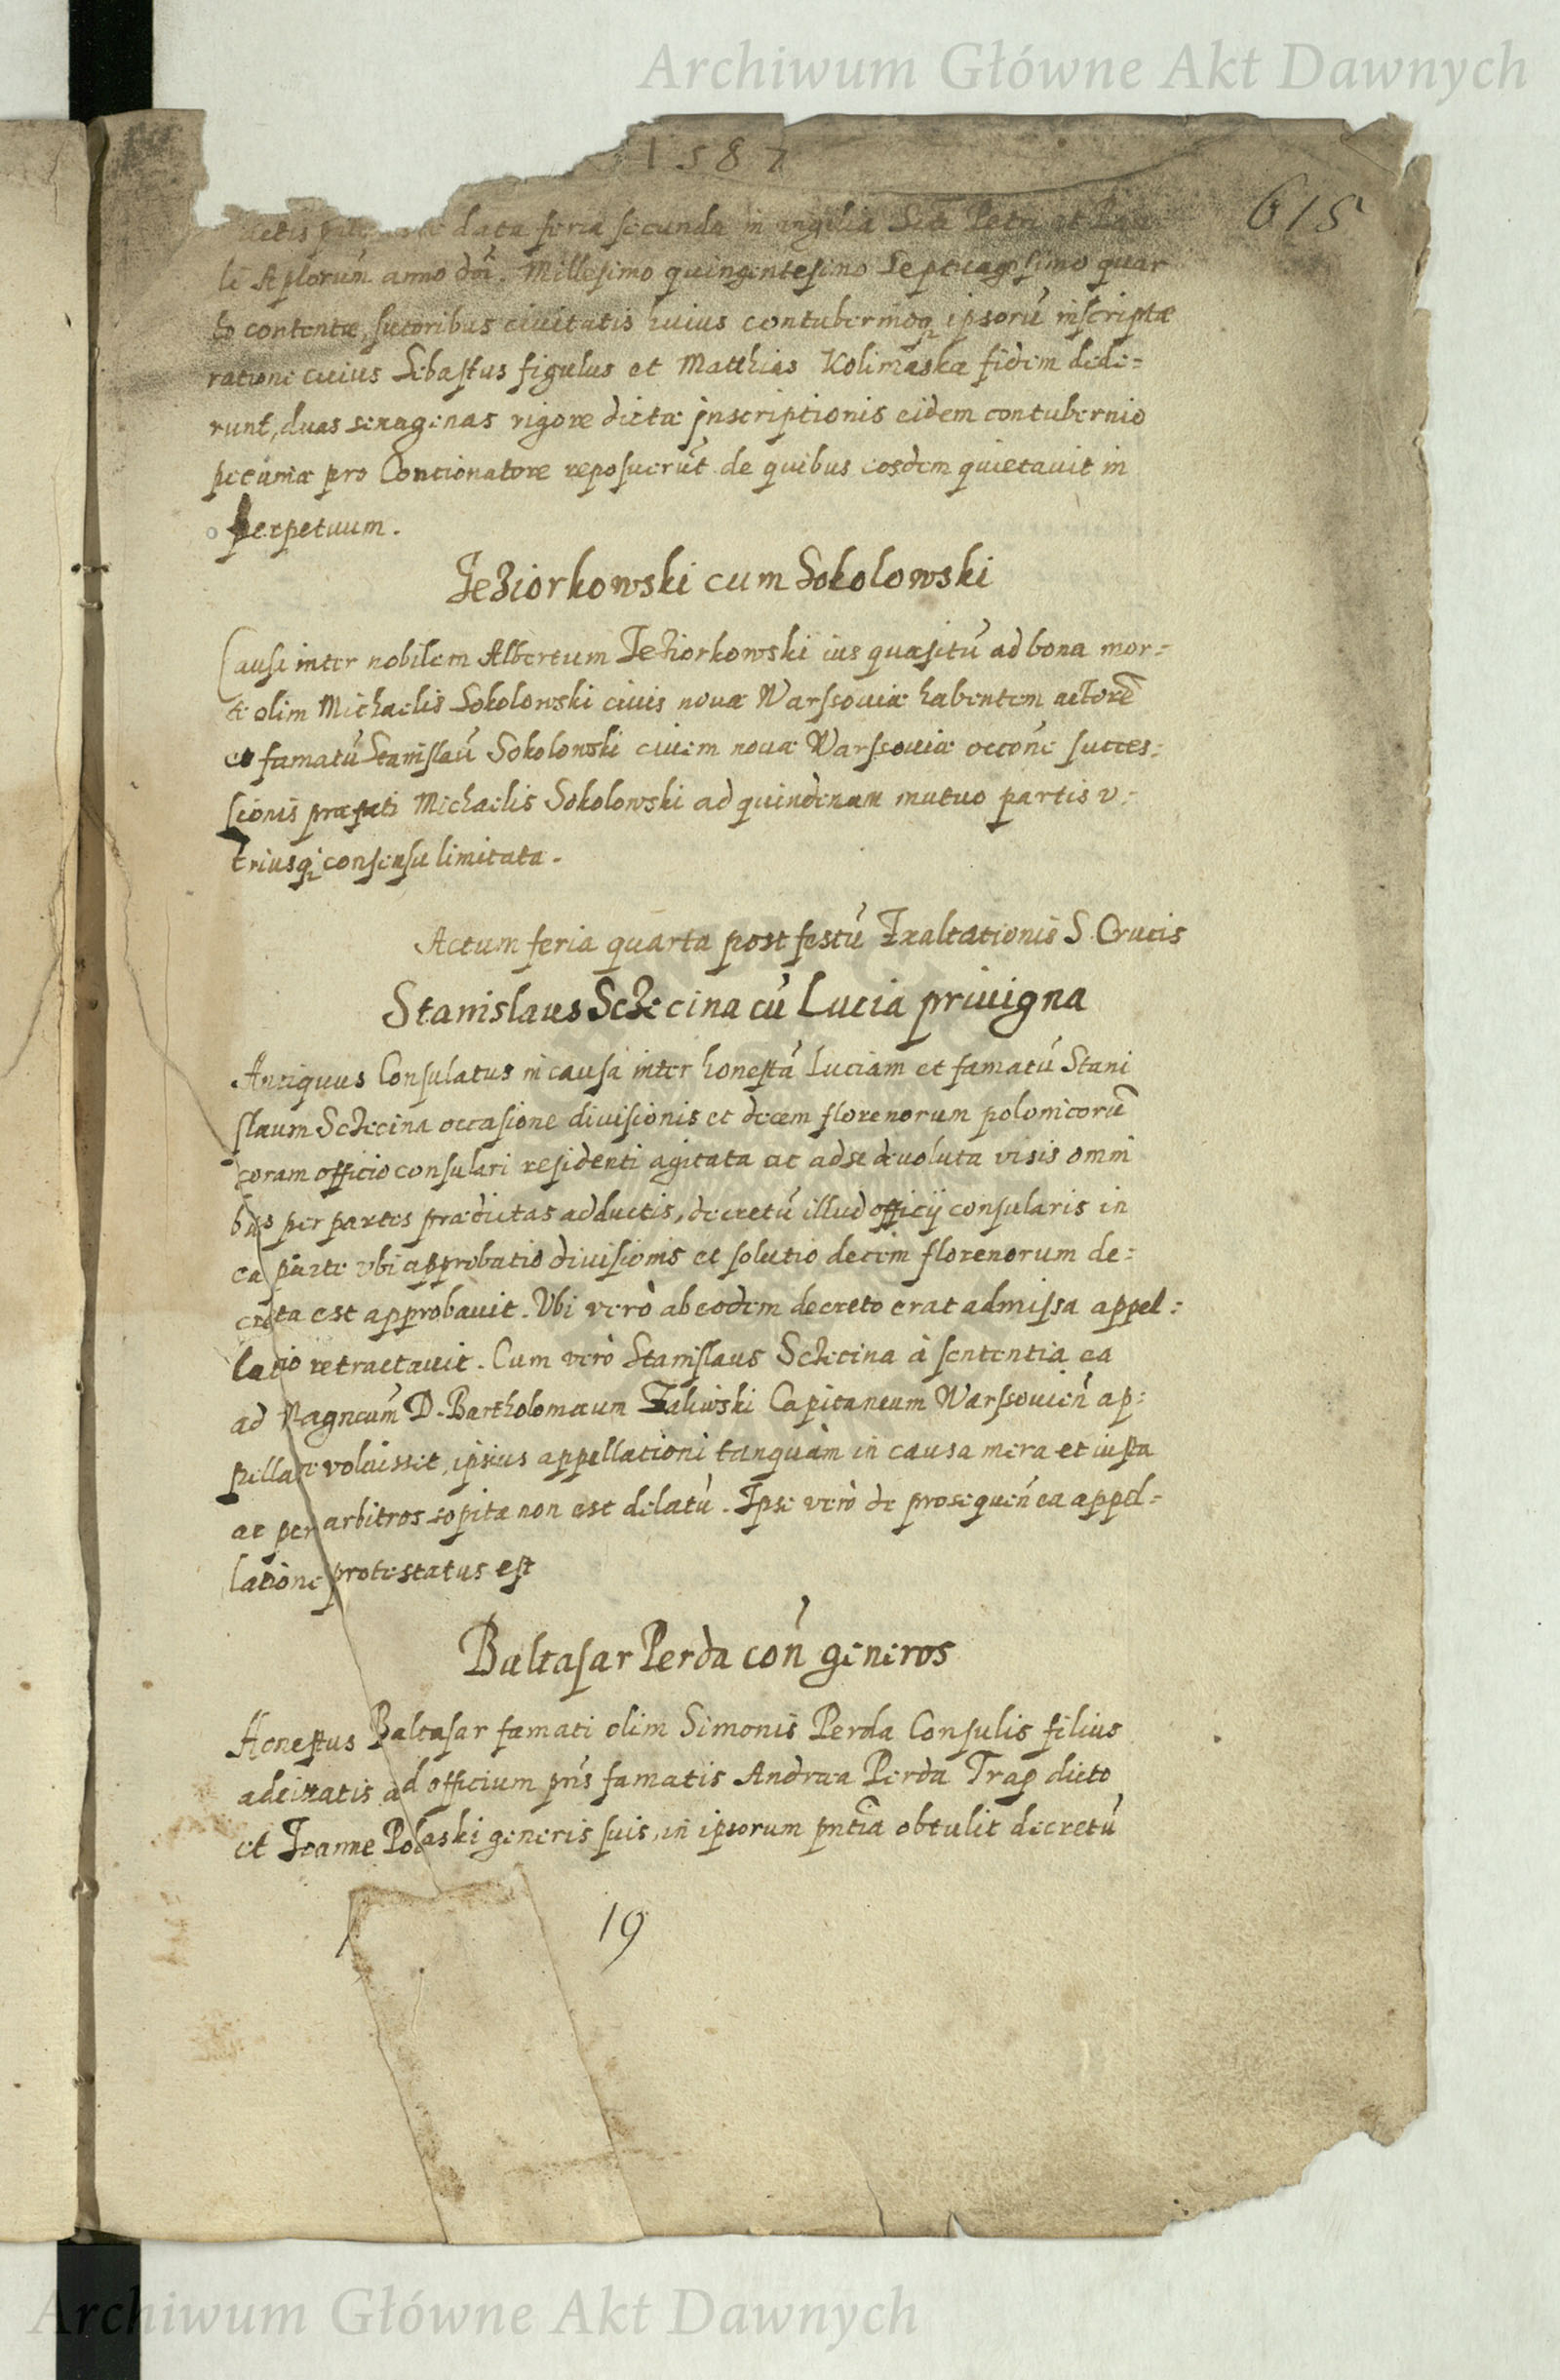 Archiwum Główne Akt Dawnych
1587
615
data feria secunda in vigilia Scti Petri et Pau
li Aplorum̃ anno dñi. Millesimo quingentesimo Septuagesimo quar
to contentæ, sutoribus ciuitatis huius contubernioq; ipsorũ inscriptæ
ratione cuius Sebastus figulus et Matthias Kolimaska fidem dede=
runt, duas sexagenas rigore dictæ jnscriptionis eidem contubernio
pecuniæ pro Concionatore reposuerũt de quibus eosdem quietauit in
perpetuum.
Jeziorkowski cum Sokolowski
Causa inter nobilem Albertum Jeziorkowski ius quæsitũ ad bona mor=
te olim Michaelis Sokolowski ciuis nouæ Warssouiæ habentem actorẽ
et famatũ Stanislaũ Sokolowski ciuem nouæ Warssouiæ occõne succes=
sionis præfati Michaelis Sokolowski ad quindenam mutuo partis v=
triusq; consensu limitata.
Actum feria quarta post festũ Exaltationis S. Crucis
Stanislaus Sczecina cũ Lucia priuigna
Antiquus Consulatus in causa inter honestã Luciam et famatũ Stani
slaum Sczecina occasione diuisionis et decem florenorum polonicorũ
coram officio consulari residenti agitata ac ad se deuoluta visis omni
bus per partes prædictas adductis, decretũ illud officij consularis in
ea parte vbi approbatio diuisionis et solutio decem florenorum de=
creta est approbauit. Vbi verò ab eodem decreto erat admissa appel=
latio retractauit. Cum verò Stanislaus Sczecina à sententia ea
ad Magncum̃ D. Bartholomæum Zaliwski Capitaneum Warssouieñ ap=
pellare voluisset, ipsius appellationi tanquàm in causa mera et iusta
ac per arbitros sopita non est delatũ. Ipse verò de prosequeñ ea appel=
latione protestatus est
Baltasar Perda coñ generos
Honestus Baltasar famati olim Simonis Perda Consulis filius
adcitatis ad officium pñs famatis Andræa Perda Trap dicto
et Joanne Polaski generis suis, in ipsorum pñtia obtulit decretũ
19
Archiwum Główne Akt Dawnych